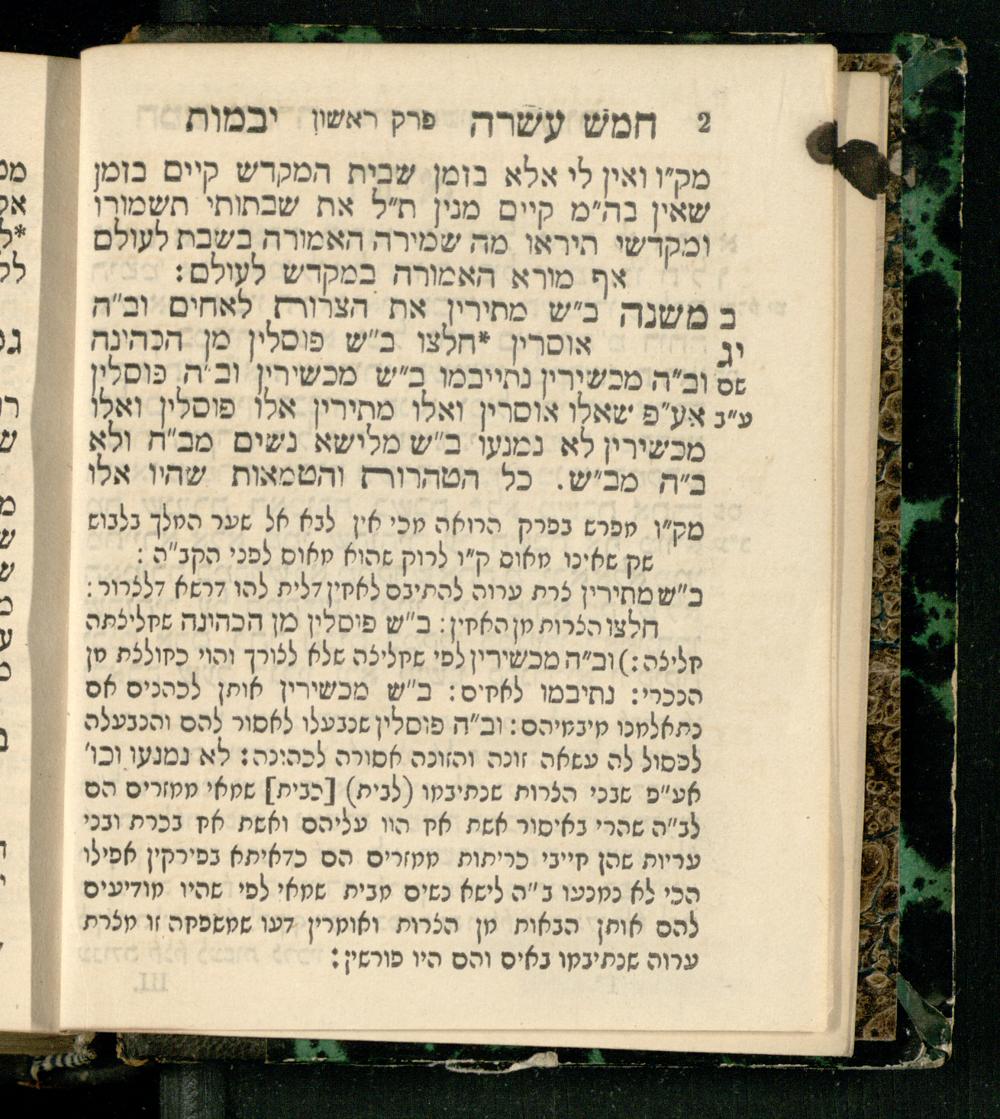 2 חמש עשרה פרק ראשון יבמות
מק״ו ואין לי אלא בזמן שבית המקדש קיים בזמן
שאין בה״מ קיים מנין ת״ל את שבתותי תשמורו
ומקדשי תיראו מה שמירה האמורה בשבת לעולם
אף מורא האמורה במקדש לעולם:
ב משנה ב״ש מתירין את הצרות לאחים וב״ה
יג אוסרין *חלצו ב״ש פוסלין מן הכהינה
שם וב״ה מכשירין נתייבמו ב״ש מכשירין וב״ה פוסלין
ע״ב אע״פ שאלו אוסרין ואלו מתירין אלו פוסלין ואלו
מכשירין לא נמנעו ב״ש מלישא נשים מב״ה ולא
ב״ה מב״ש. כל הטהרות והטמאות שהיו אלו
מק״ו מפרש בפרק הרואה מכי אין לבא אל שער המלך בלבוש
שק שאינו מאוס ק״ו לרוק שהוא מאוס לפני הקב״ה:
ב״ש מתירין צרת ערוה להתיבם לאחין דלית להו דרשא דלצרור:
חלצו הצרות מן האחין: ב״ש פוסלין מן הכהינה שחליצתה
חליצה:) וב״ה מכשירין לפי שחליצה שלא לצורך והוי כחולצת מן
הנכרי: נתיבמו לאחים: ב״ש מכשירין אותן לכהנים אם
נתאלמנו מיבמיהם: וב״ה פוסלין שנבעלו לאסור להם והנבעלה
לפסול לה עשאה זונה והזונה אסורה לכהינה: לא נמנעו וכו׳
אע״פ שבני הצרות שנתיבמו (לבית) [כבית] שמאי ממזרים הם
לב״ה שהרי באיסור אשת אח הוו עליהם ואשת אח בכרת ובני
עריות שהן חייבי כריתות ממזרים הם כדאיתא בפירקין אפילו
הכי לא נמנעו ב״ה לישא נשים מבית שמאי לפי שהיו מודיעים
להם אותן הבאות מן הצרות ואומרין דעו שמשפחה זו מצרת
ערוה שנתיבמו באים והם היו פורשין: